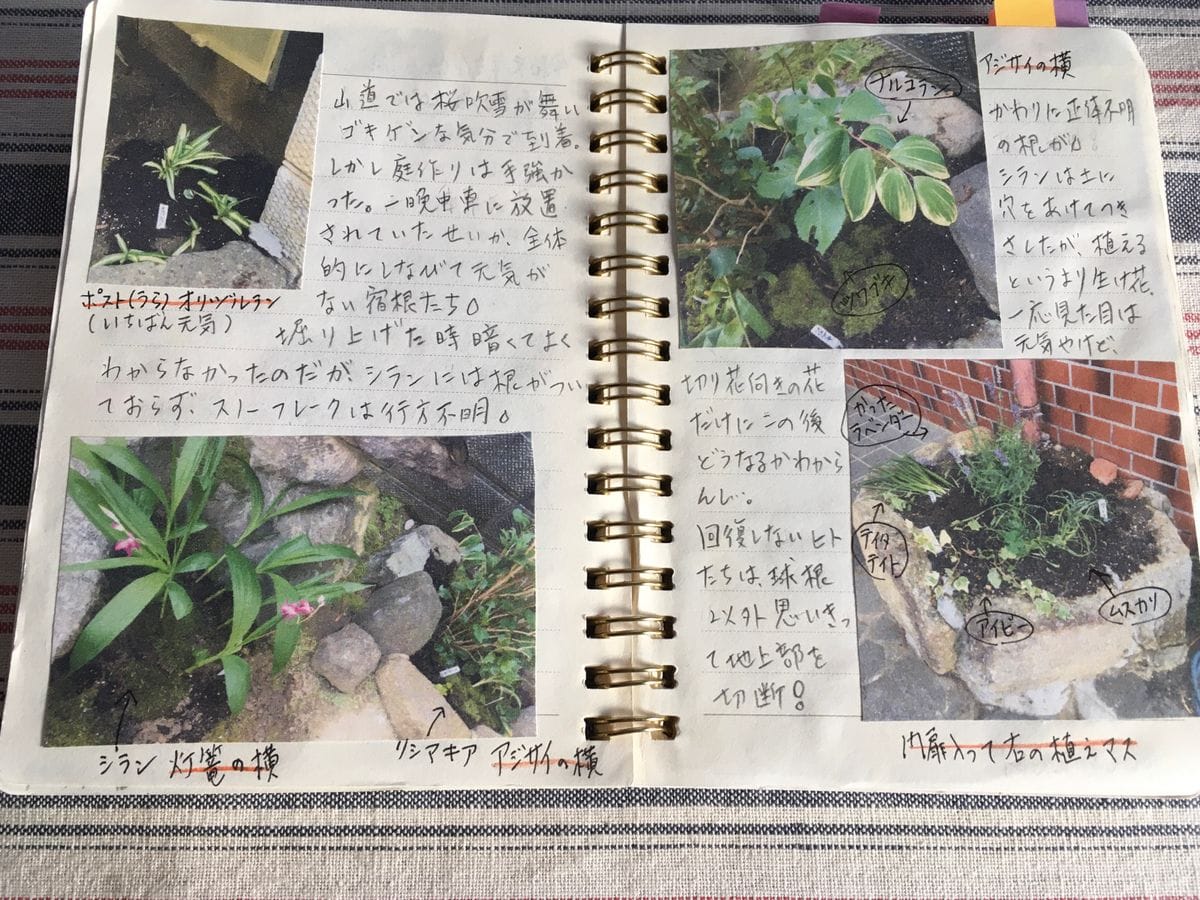 山道では桜吹雪が舞い
ゴキゲンな気分で到着。
しかし庭作りは手強か
った。二晩車に放置
されていたせいか、全体
的にしなびて元気が
ない宿根たち。
ポスト(うら) オリヅルラン
(いちばん元気)
掘り上げた時暗くてよく
わからなかったのだが、シランには根がつい
ておらず、スノーフレークは行方不明。
シラン 灯篭の横
リシマキア アジサイの横
アジサイの横
ナルコラン
ツワブキ
かわりに正体不明
の根が
シランは土に
穴をあけてつき
さしたが、植える
というより生け花。
一応見た目は
元気やけど、
切り花向きの花
だけにこの後
どうなるかわから
んし。
回復しないヒト
たちは、球根
以外思いきっ
て地上部を
切断!
かった
ラベンダー
テイタ
テイト
アイビー
ムスカリ
内扉入って右の植えマス